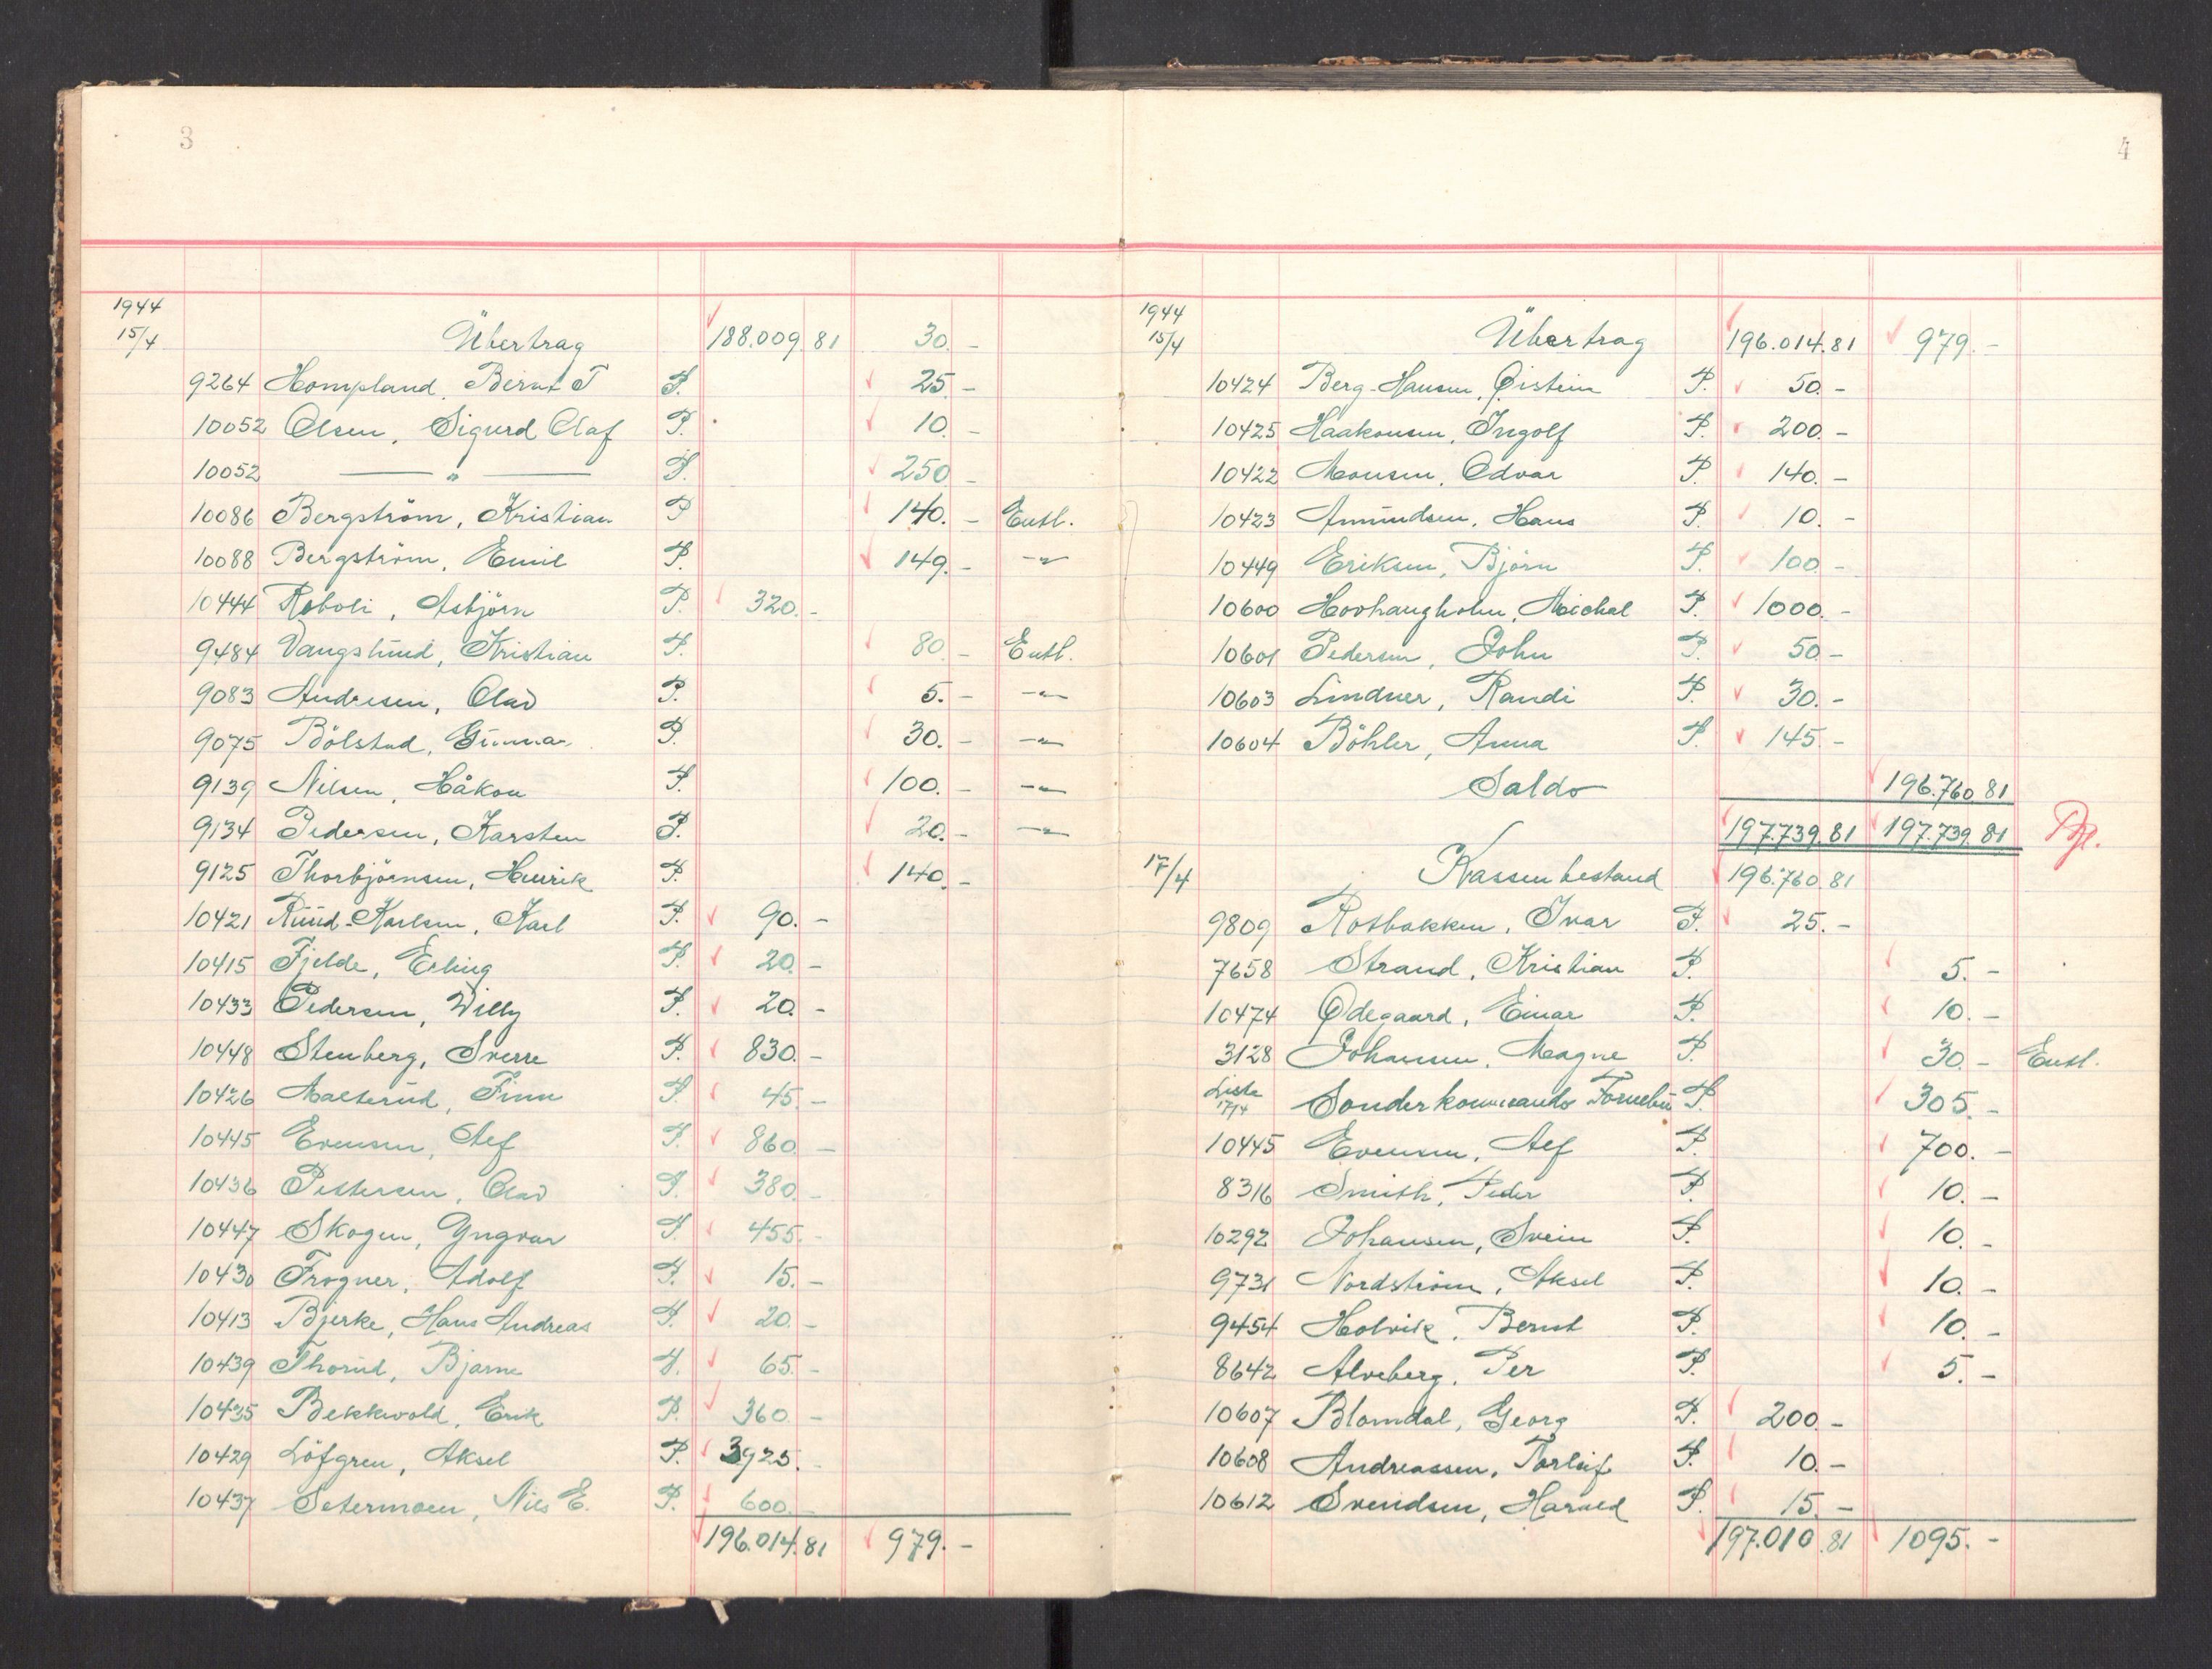 3
1944
15/4 Übertrag 188.009 81 30.-
9264 Hompland, Bernt T P. 25.-
10052 Olsen, Sigurd Olaf P. 10.-
10052 — " — P. 250.-
10086 Bergström, Kristian P 140.- Entl.
10088 Bergström, Emil P. 149.- -"-
10444 Roboli, Asbjörn P. 320.-
9484 Vangslund, Kristian P. 80.- Entl.
9083 Andresen, Olav P. 5.- -"-
9075 Bölstad, Gunnar P. 30.- -"-
9139 Nilsen, Håkon P. 100.- -"-
9134 Pedersen, Karsten P. 20.- -"-
9125 Thorbjörnsen, Henrik P. 140.-
10421 Ruud-Karlsen, Karl P. 90.-
10415 Fjelde, Erling P. 20.-
10433 Pedersen, Willy P. 20.-
10448 Stenberg, Sverre P. 830.-
10426 Malterud, Finn P. 45.-
10445 Evensen, Alf P. 860.-
10436 Pettersen, Olav P. 380.-
10447 Skogen, Yngvar P. 455.-
10430 Frogner, Adolf P. 15.-
10413 Bjerke, Hans Andreas P. 20.-
10439 Thorud, Bjarne P. 65.-
10435 Bekkevold, Erik P. 360.-
10429 Löfgren, Aksel P. 3925.-
10437 Setermoen, Nils E. P. 600.-
196.014.81 979.-
4
1944
15/4 Übertrag 196.014.81 979.-
10424 Berg-Hansen, Øistein P. 50.-
10425 Haakonsen, Ingolf P. 200.-
10422 Monsen, Odvar P. 140.-
10423 Amundsen, Hans P. 10.-
10449 Eriksen, Björn P. 100.-
10600 Hovhaugholm, Michal P. 1000.-
10601 Pedersen, John P. 50.-
10603 Lindner, Randi P. 30.-
10604 Böhler, Anna P. 145.-
Saldo 196.760 81
197.739.81 197.739.81
17/4 Kassenbestand 196.760.81
9809 Rotbakken, Ivar P. 25.-
7658 Strand, Kristian P. 5.-
10474 Ødegaard, Einar P. 10.-
3128 Johansen, Magne P. 30.- Entl.
Liste 17/4 Sonderkommando Fornebu P. 305.-
10445 Evensen, Alf P. 700.-
8316 Smith, Peder P. 10.-
10292 Johansen, Svein P. 10.-
9731 Nordström, Aksel P. 10.-
9454 Holvik, Bernt P. 10.-
8642 Alveberg, Per P. 5.-
10607 Blomdal, Georg P. 200.-
10608 Andreassen, Torleif P. 10.-
10612 Svendsen, Harald P. 15.-
197.010.81 1095.-